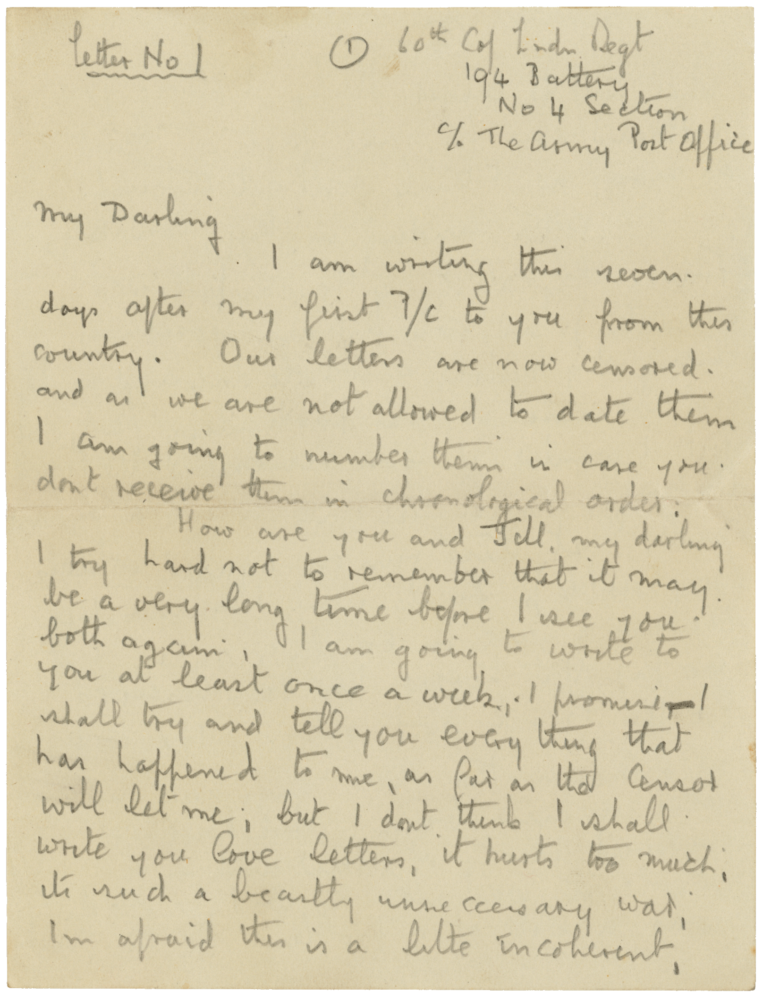 Letter No 1
① 60th (City of London Regt
194 Battery
No 4 Section
c/o The Army Post Office
My Darling
I am writing this seven
days after my first P/C to you from this
country. Our letters are now censored.
and as we are not allowed to date them
I am going to number them in case you
dont receive them in chronological order.
How are you and Jill, my darling
I try hard not to remember that it may
be a very long time before I see you
both again, I am going to write to
you at least once a week, I promise, – I
shall try and tell you every thing that
has happened to me, as far as the Censor
will let me; but I dont think I shall
write you love letters, it hurts too much;
its such a beastly unneccessary war;
Im afraid this is a little incoherent,